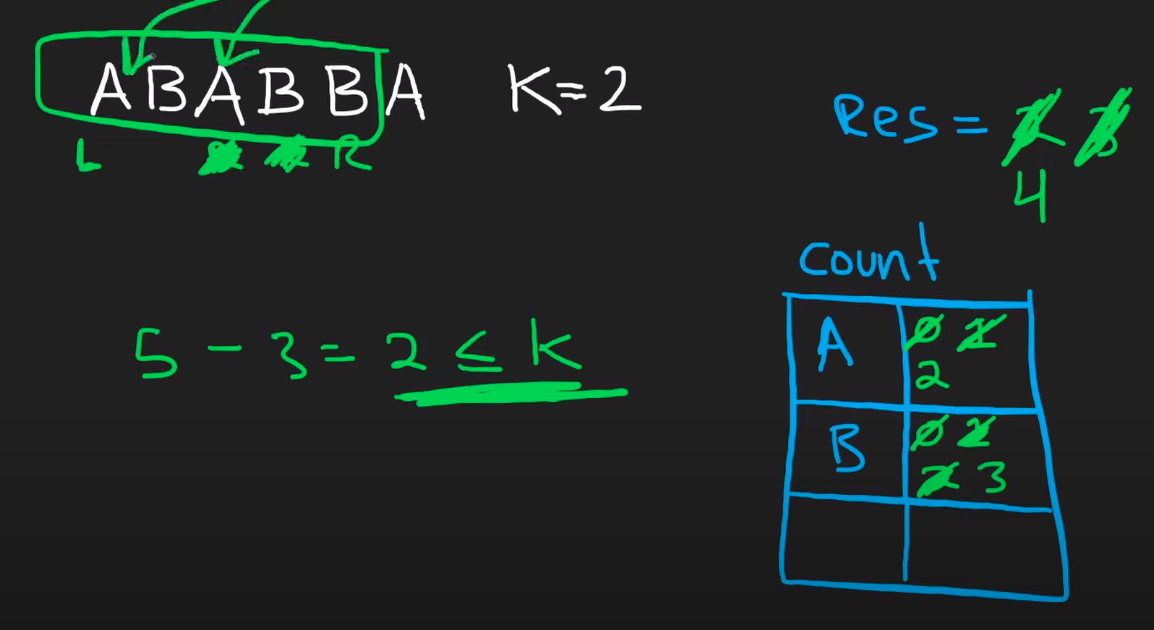 ABABBA K=2
L R
Res = 4
5 - 3 = 2 ≤ K
Count
A 0 1
2
B 0 1
2 3